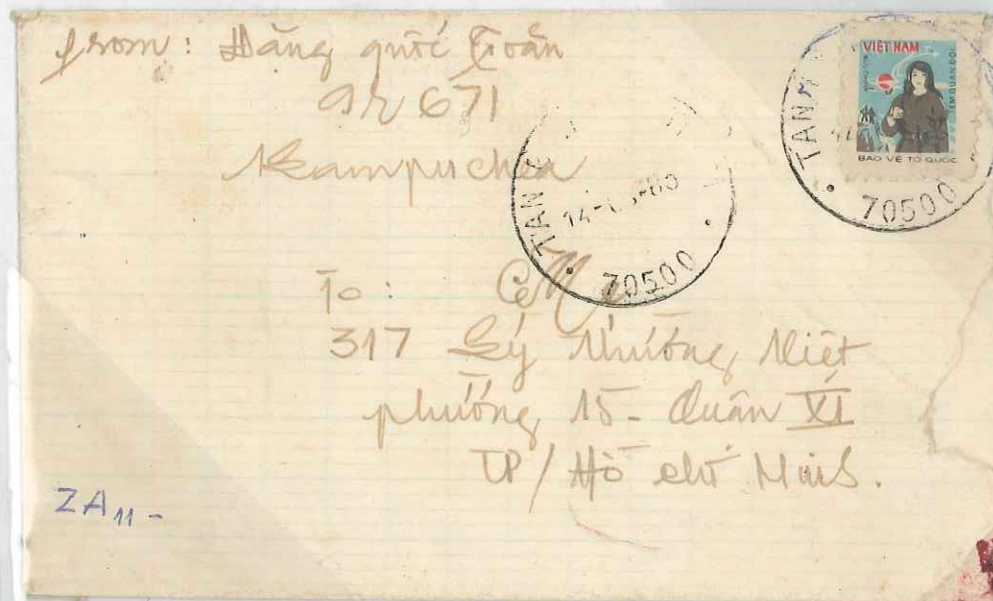 from: Đăng quốc Toản
671
Kampuchea
VIỆT NAM
TEM QUÂN ĐỘI
BẢO VỆ TỔ QUỐC
TAN
70500
TAN
70500
To:
317 Lý Thường Kiệt
phường 15 - Quận XI
TP/ Hồ chí Minh.
ZA 11 -